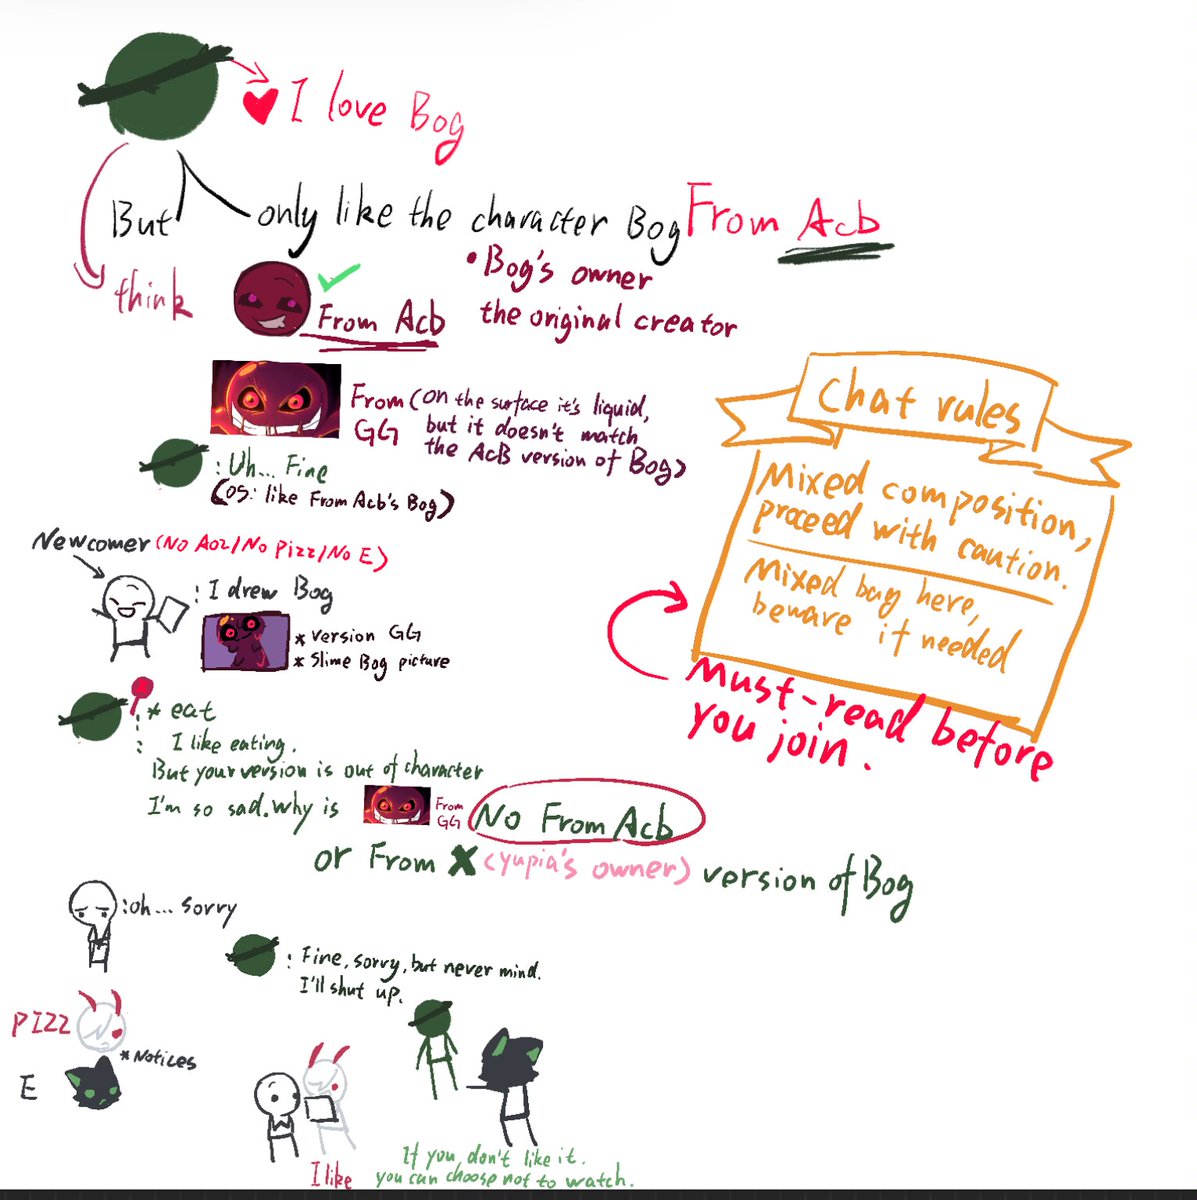 I love Bog
But only like the character Bog From Acb
think
From Acb
• Bog's owner
the original creator
From GG
(on the surface it's liquid,
but it doesn't match
the AcB version of Bog)
: Uh... Fine
(OS: like From Acb's Bog)
Chat rules
Mixed composition,
proceed with caution.
Mixed bag here,
beware it needed
Must-read before
you join.
Newcomer (No Aoz/No Pizz/No E)
: I drew Bog
* version GG
* Slime Bog picture
* eat
: I like eating.
But your version is out of character
I'm so sad. why is
From GG
No From Acb
or From X (yupia's owner) version of Bog
: oh... sorry
: Fine, sorry, but never mind.
I'll shut up.
PIZZ
* Notices
E
I like
If you don't like it.
you can choose not to watch.